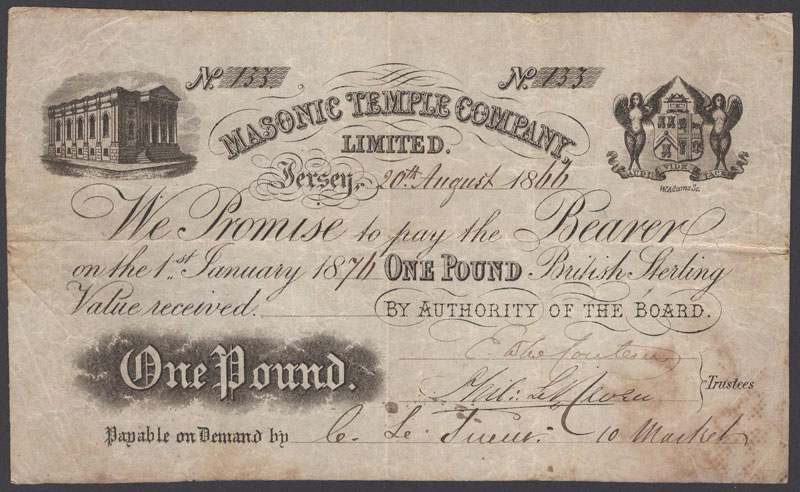 No. 133 No. 133
MASONIC TEMPLE COMPANY,
LIMITED.
AUDI VIDE TACE
W.Adams Sc.
Jersey, 20th August 1866
We Promise to pay the Bearer
on the 1st January 1876 ONE POUND British Sterling
Value received. BY AUTHORITY OF THE BOARD.
One Pound.
Trustees
Payable on Demand by C. Le Sueur 10 Market